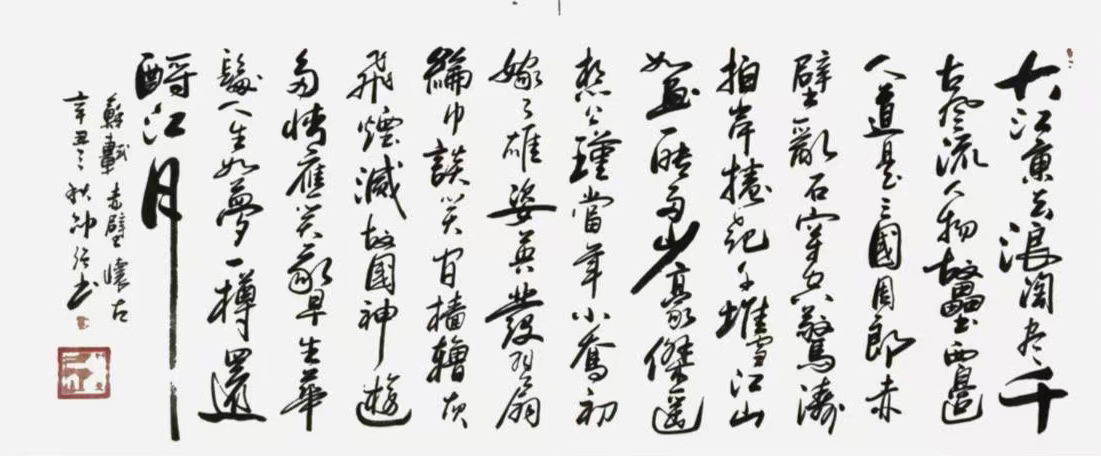 大江東去浪淘尽千
古風流人物故壘西邊
人道是三國周郎赤
壁亂石穿空驚濤
拍岸捲起千堆雪江山
如畫一時多少豪傑遥
想公瑾當年小喬初
嫁了雄姿英發羽扇
綸巾談笑间檣櫓灰
飛煙滅故國神遊
多情應笑我早生華
髮人生如夢一樽還
酹江月
蘇軾赤壁懷古
辛丑之秋书